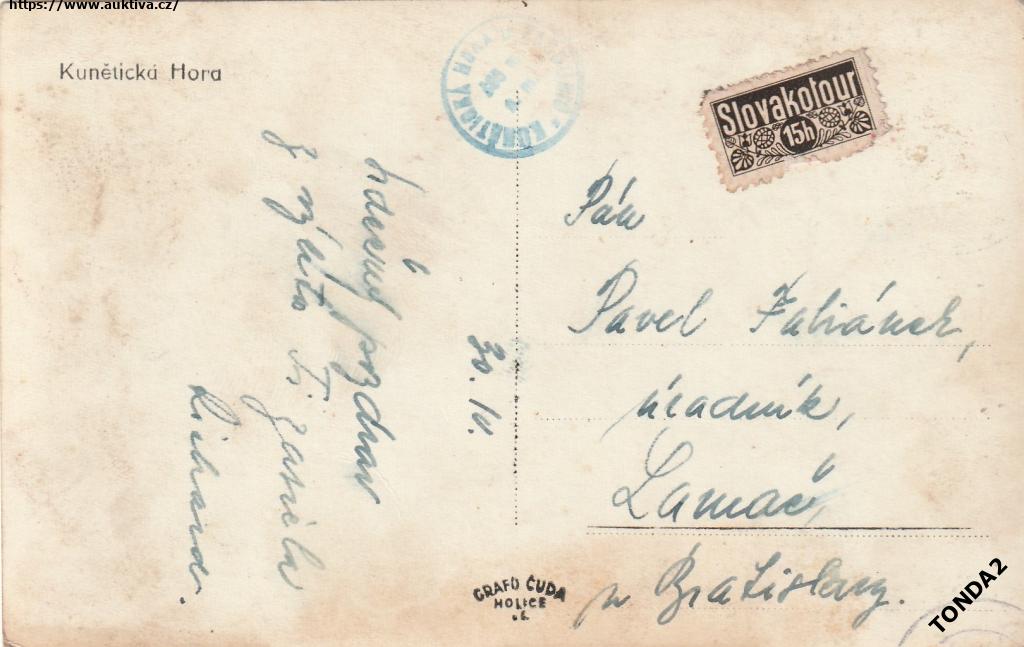 https://www.auktiva.cz/
Kunětická Hora
KUNĚTICKÁ HORA
Slovakotour
15h
30. IV.
Srdečný pozdrav
z výletu Ti zasiela
Richard.
Pán
Pavel Fabiánek,
úradník,
Lamač,
p. Bratislavy.
GRAFO ČUDA
HOLICE
TONDA2